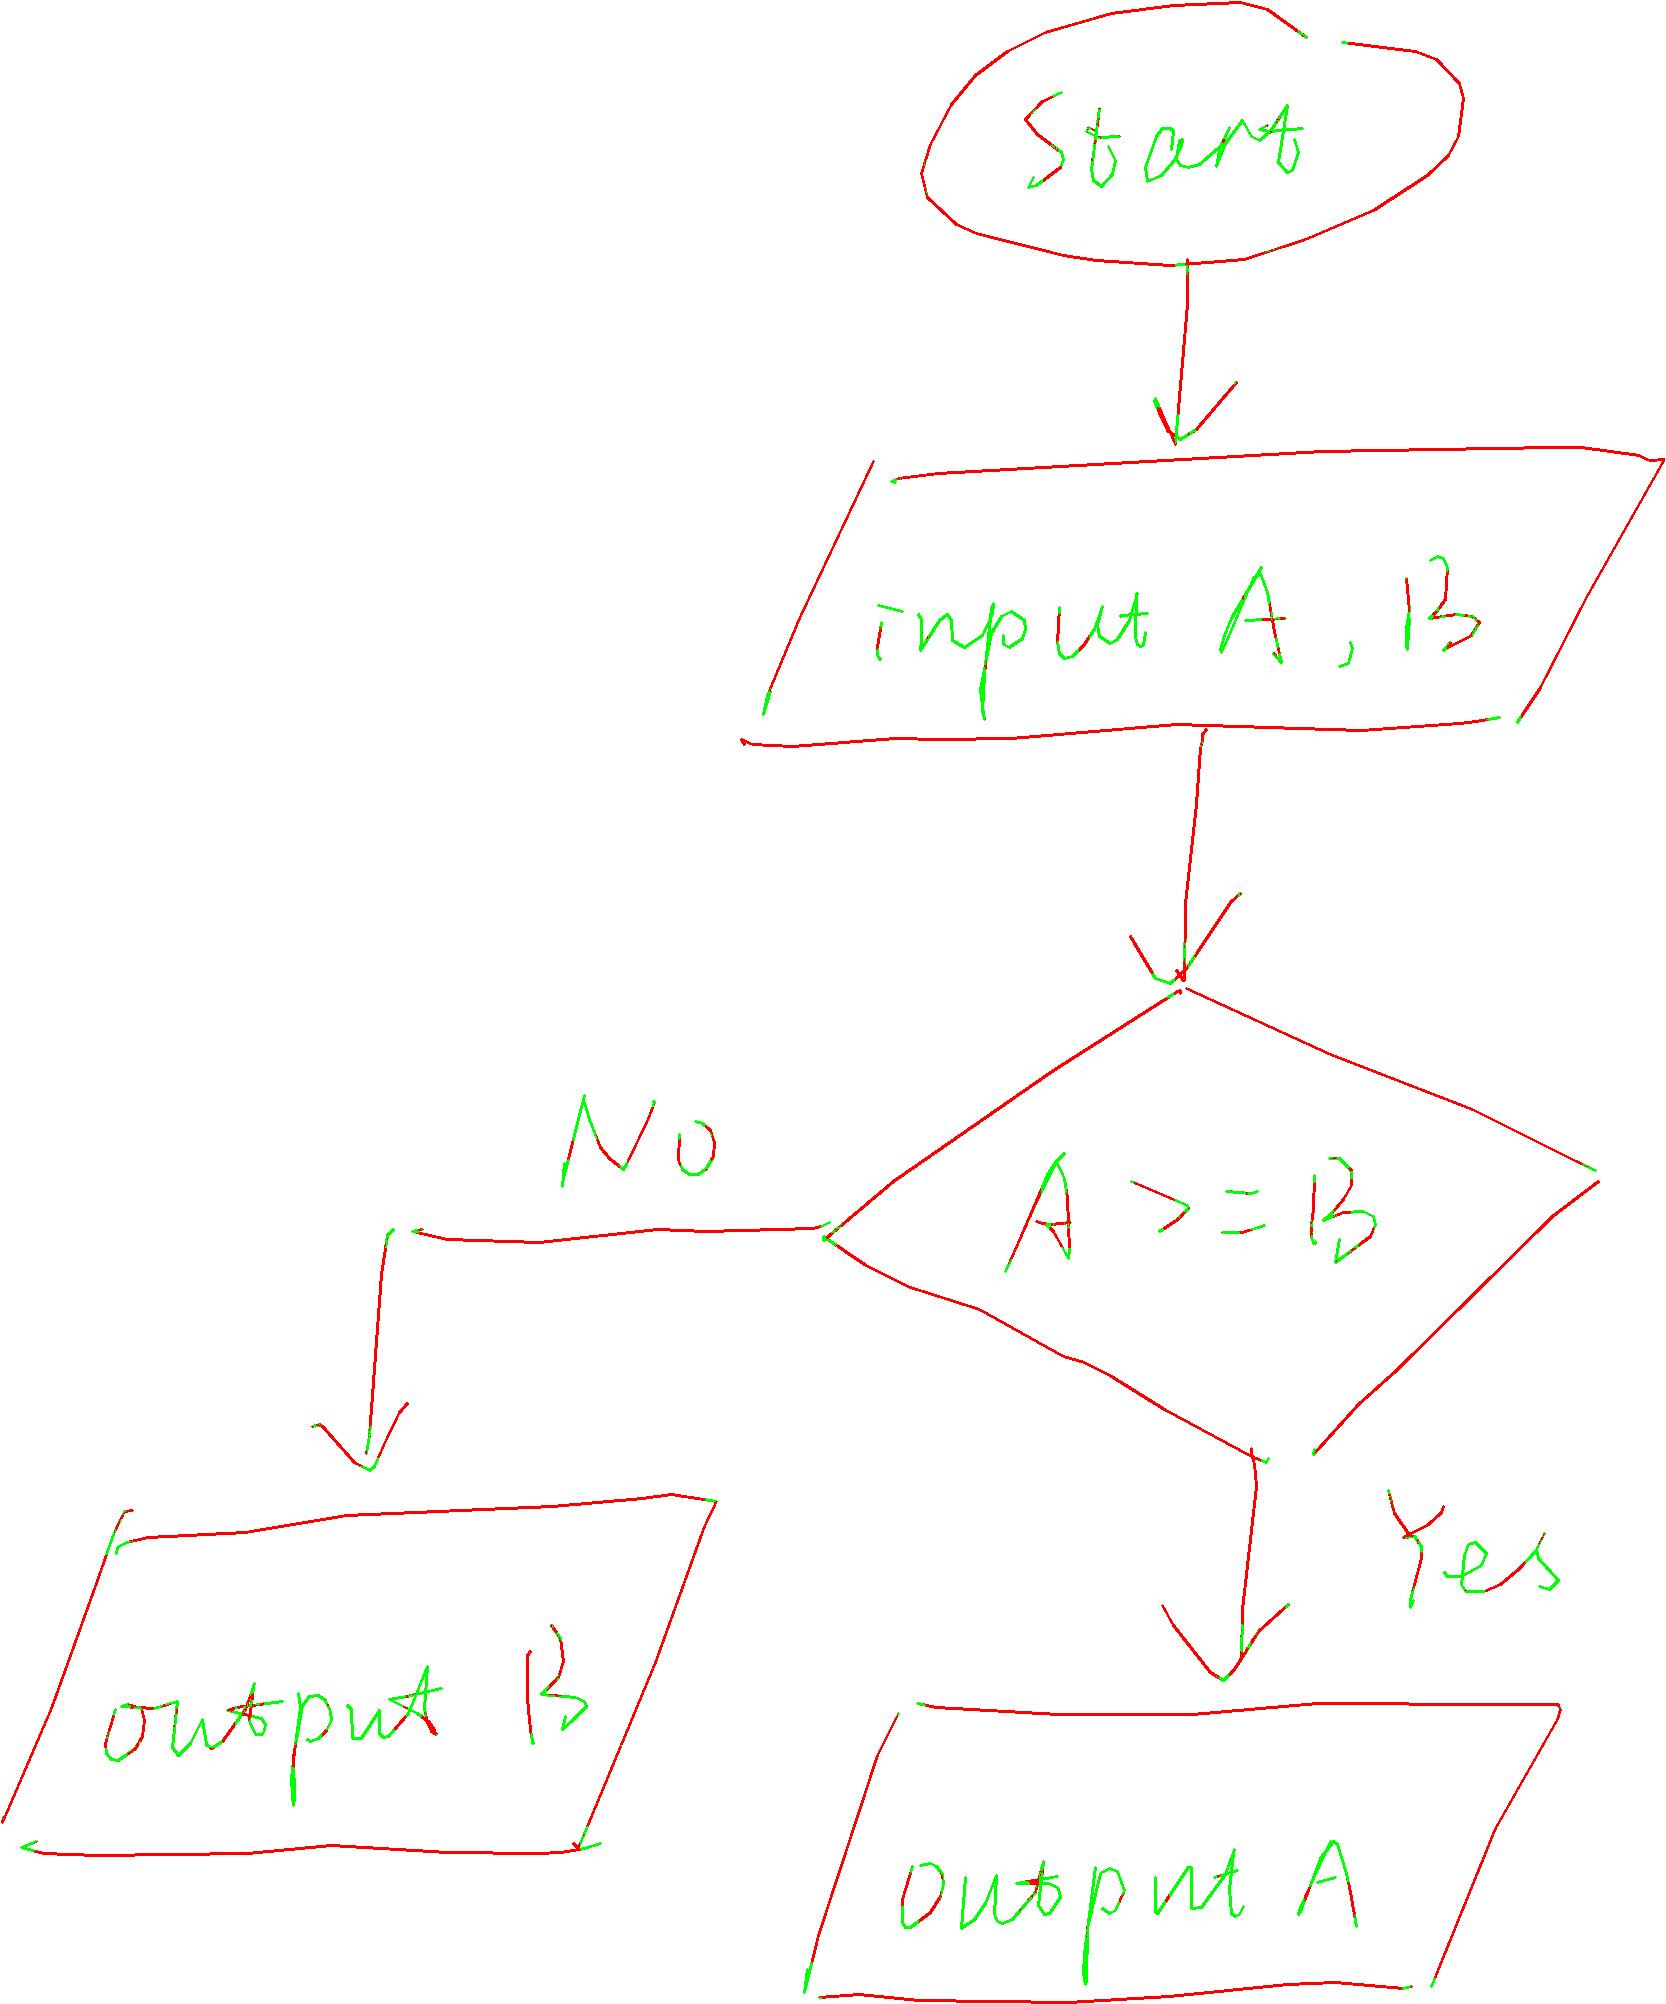 Start
input A, B
No
A >= B
Yes
output B
output A